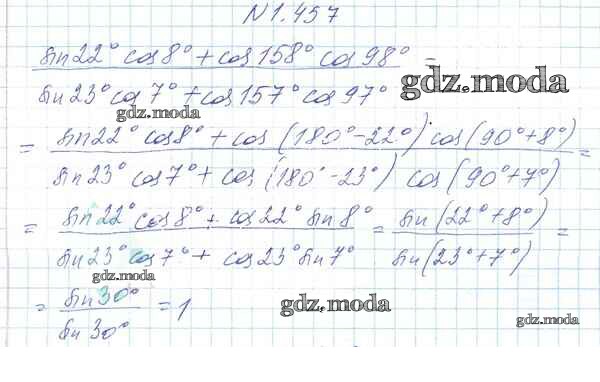 N1.457
sin22° cos8° + cos158° cos98° =
sin23° cos7° + cos157° cos97°
gdz.moda
gdz.moda
= sin22° cos8° + cos(180°-22°) cos(90°+8°) =
sin23° cos7° + cos(180°-23°) cos(90°+7°)
= sin22° cos8° + cos22° sin8° = sin(22°+8°) =
sin23° cos7° + cos23° sin7° sin(23°+7°)
gdz.moda
= sin30° = 1
sin30°
gdz.moda
gdz.moda